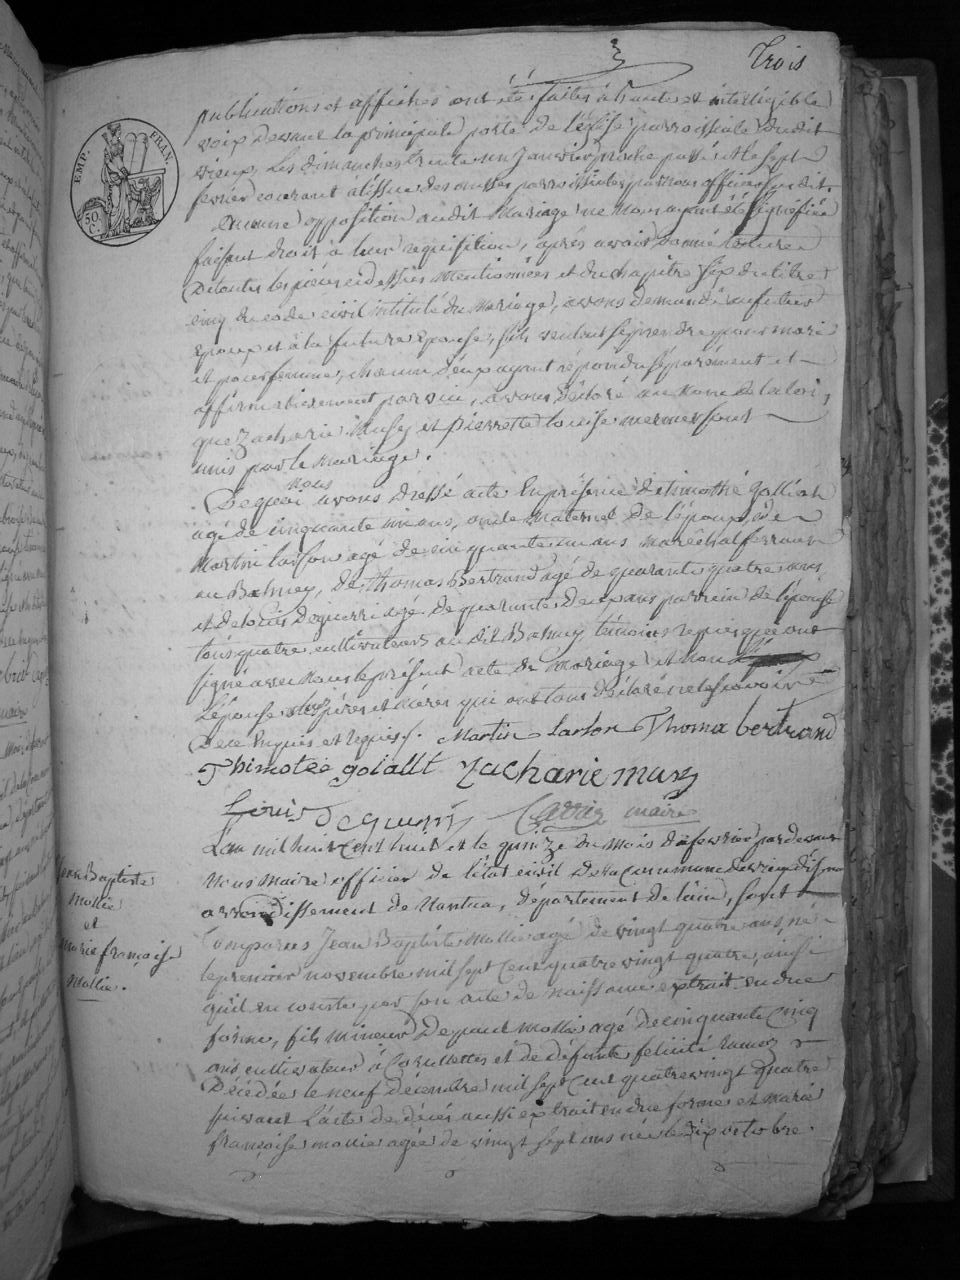 3
Trois
EMP. FRAN.
50. C.
publications et affiches ont été faites à haute et intelligible
voix devant la principale porte de l'église parroissiale dudit
vieux, les dimanches trente un Janvier proche passé et le sept
fevrier courant à l'issue des messes parroissiales par nous officier susdit.
aucune opposition audit mariage ne nous ayant été signifiée
faisant droit à leur requisition, après avoir donné lecture
De toutes les pièces ci dessus mentionnées et du chapitre six du titre
cinq du code civil intitulé du Mariage, avons demandé au futur
Epoux et à la future Epouse, s'ils veulent se prendre pour mari
et pour femme, chacun d'eux ayant répondu séparément et
affirmativement par oui, avons déclaré au nom de la loi,
que Zacharie Musy et pierrette louise mermet sont
unis par le mariage.
nous
De quoi avons dressé acte En présence de timothé
agé de cinquante ans, oncle maternel de l'epoux, de
Martin agé de cinquante un ans maréchal ferrant
au Balmey, de thomas Bertrand agé de quarante quatre ans
et de louis Deguerri agé de quarante deux ans parrein de l'épouse
tous quatre cultivateurs au dit Balmey témoins requis que ont
signé avec nous le présent acte de mariage et non
l'épouse pères et mères qui ont tous déclaré ne le savoir
De ce Enquis et requis. Martin larson Thoma bertrand
Thimotée golallt zacharie musy
Louis Deguerri maire
L'an mil huit cent huit et le quinze du mois de fevrier par devant
Nous Maire officier de l'état civil De la Commune de vieu d'
arrondissement de Nantua, département de l'ain, sont
Comparus Jean Baptiste Mollie agé de vingt quatre ans, né
le premier novembre mil sept cent quatre vingt quatre, ainsi
qu'il en conste par son acte de naissance extrait en due
forme, fils mineur De paul mollie agé de cinquante Cinq
ans cultivateur à et de défunte felicité
Décédée le neuf décembre mil sept cent quatre vingt quatre
suivant l'acte de décés aussi extrait en due forme et marie
françoise mollie agée de vingt sept ans née le dix octobre
Jean Baptiste
Mollie
et
marie françoise
Mollie.